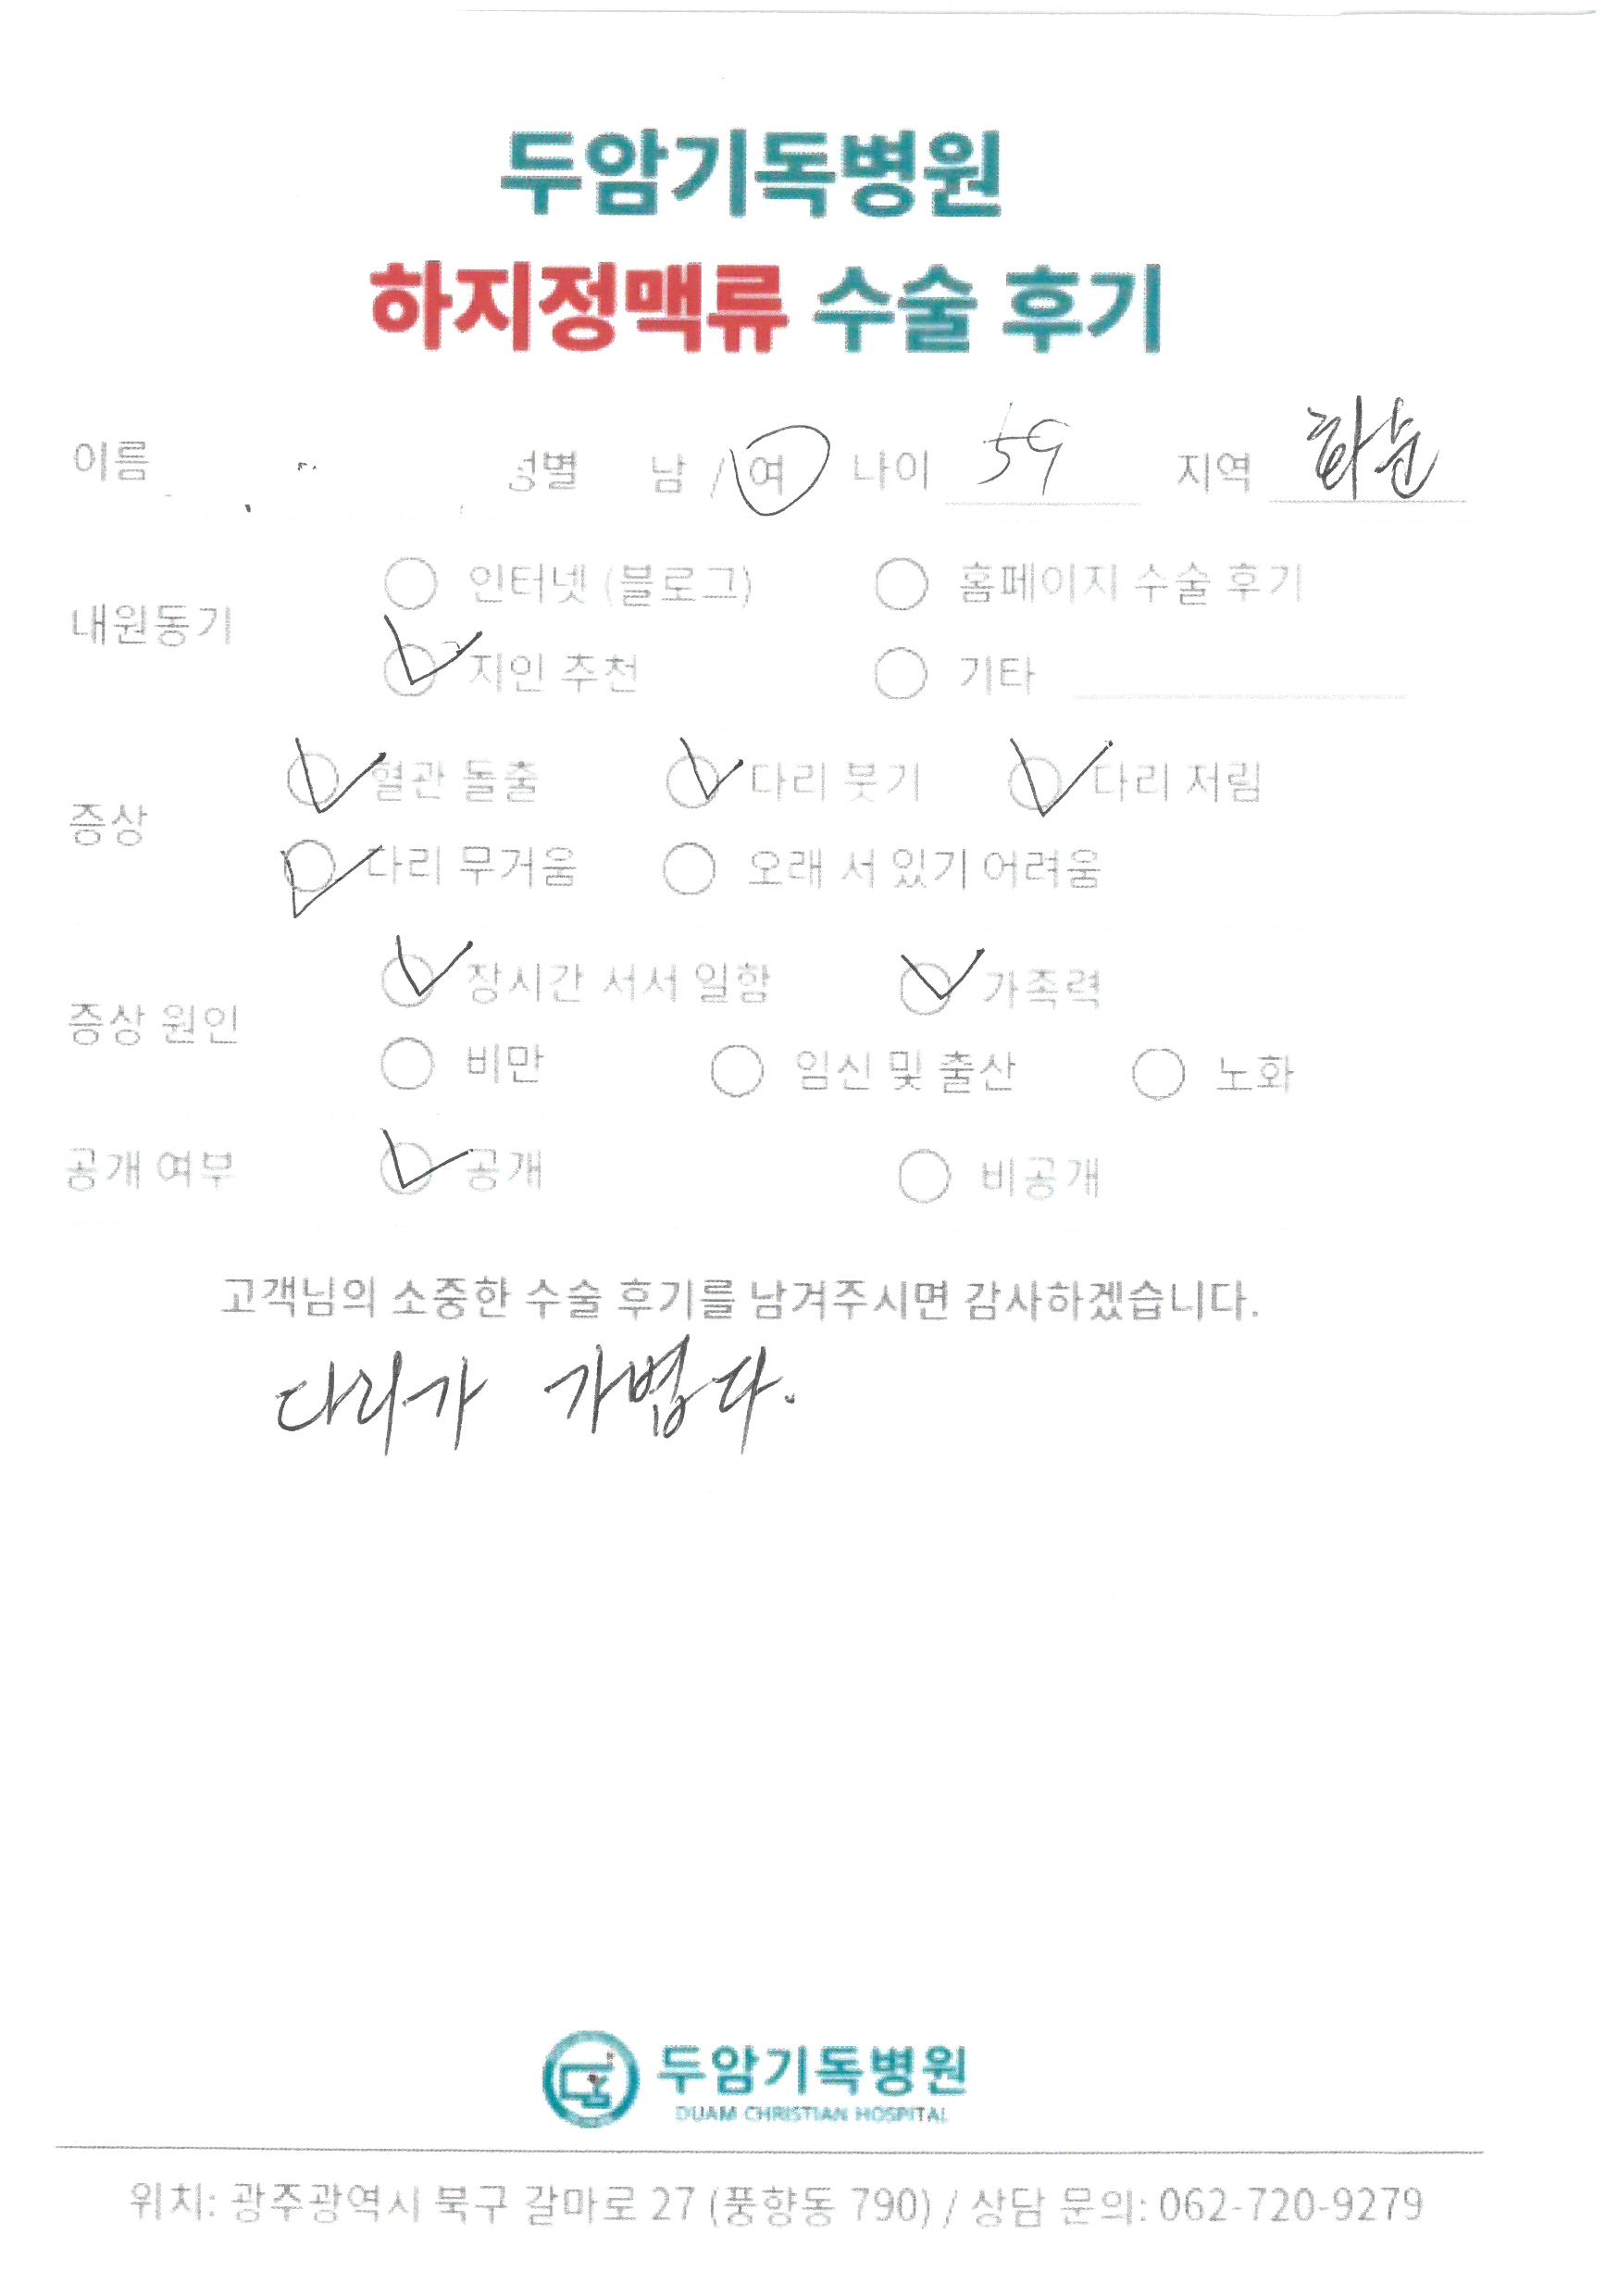 두암기독병원
하지정맥류 수술 후기
이름 성별 남 / 여 나이 59 지역 화순
내원동기
인터넷 (블로그) 홈페이지 수술 후기
지인 추천 기타
증상
혈관 돌출 다리 붓기 다리 저림
다리 무거움 오래 서 있기 어려움
증상 원인
장시간 서서 일함 가족력
비만 임신 및 출산 노화
공개 여부 공개 비공개
고객님의 소중한 수술 후기를 남겨주시면 감사하겠습니다.
다리가 가볍다.
두암기독병원
DUAM CHRISTIAN HOSPITAL
위치: 광주광역시 북구 갈마로 27 (풍향동 790) / 상담 문의: 062-720-9279